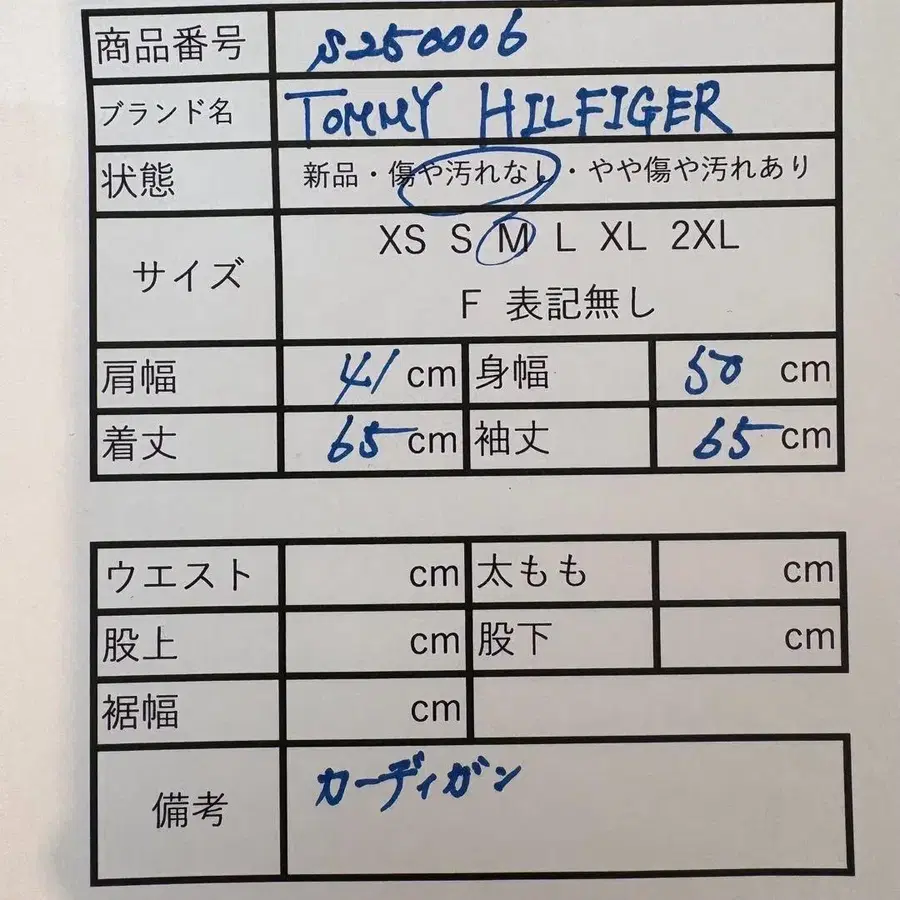 商品番号 S250006
ブランド名 TOMMY HILFIGER
状態 新品・傷や汚れなし・やや傷や汚れあり
サイズ XS S M L XL 2XL
F 表記無し
肩幅 41 cm 身幅 50 cm
着丈 65 cm 袖丈 65 cm
ウエスト cm 太もも cm
股上 cm 股下 cm
裾幅 cm
備考 カーディガン